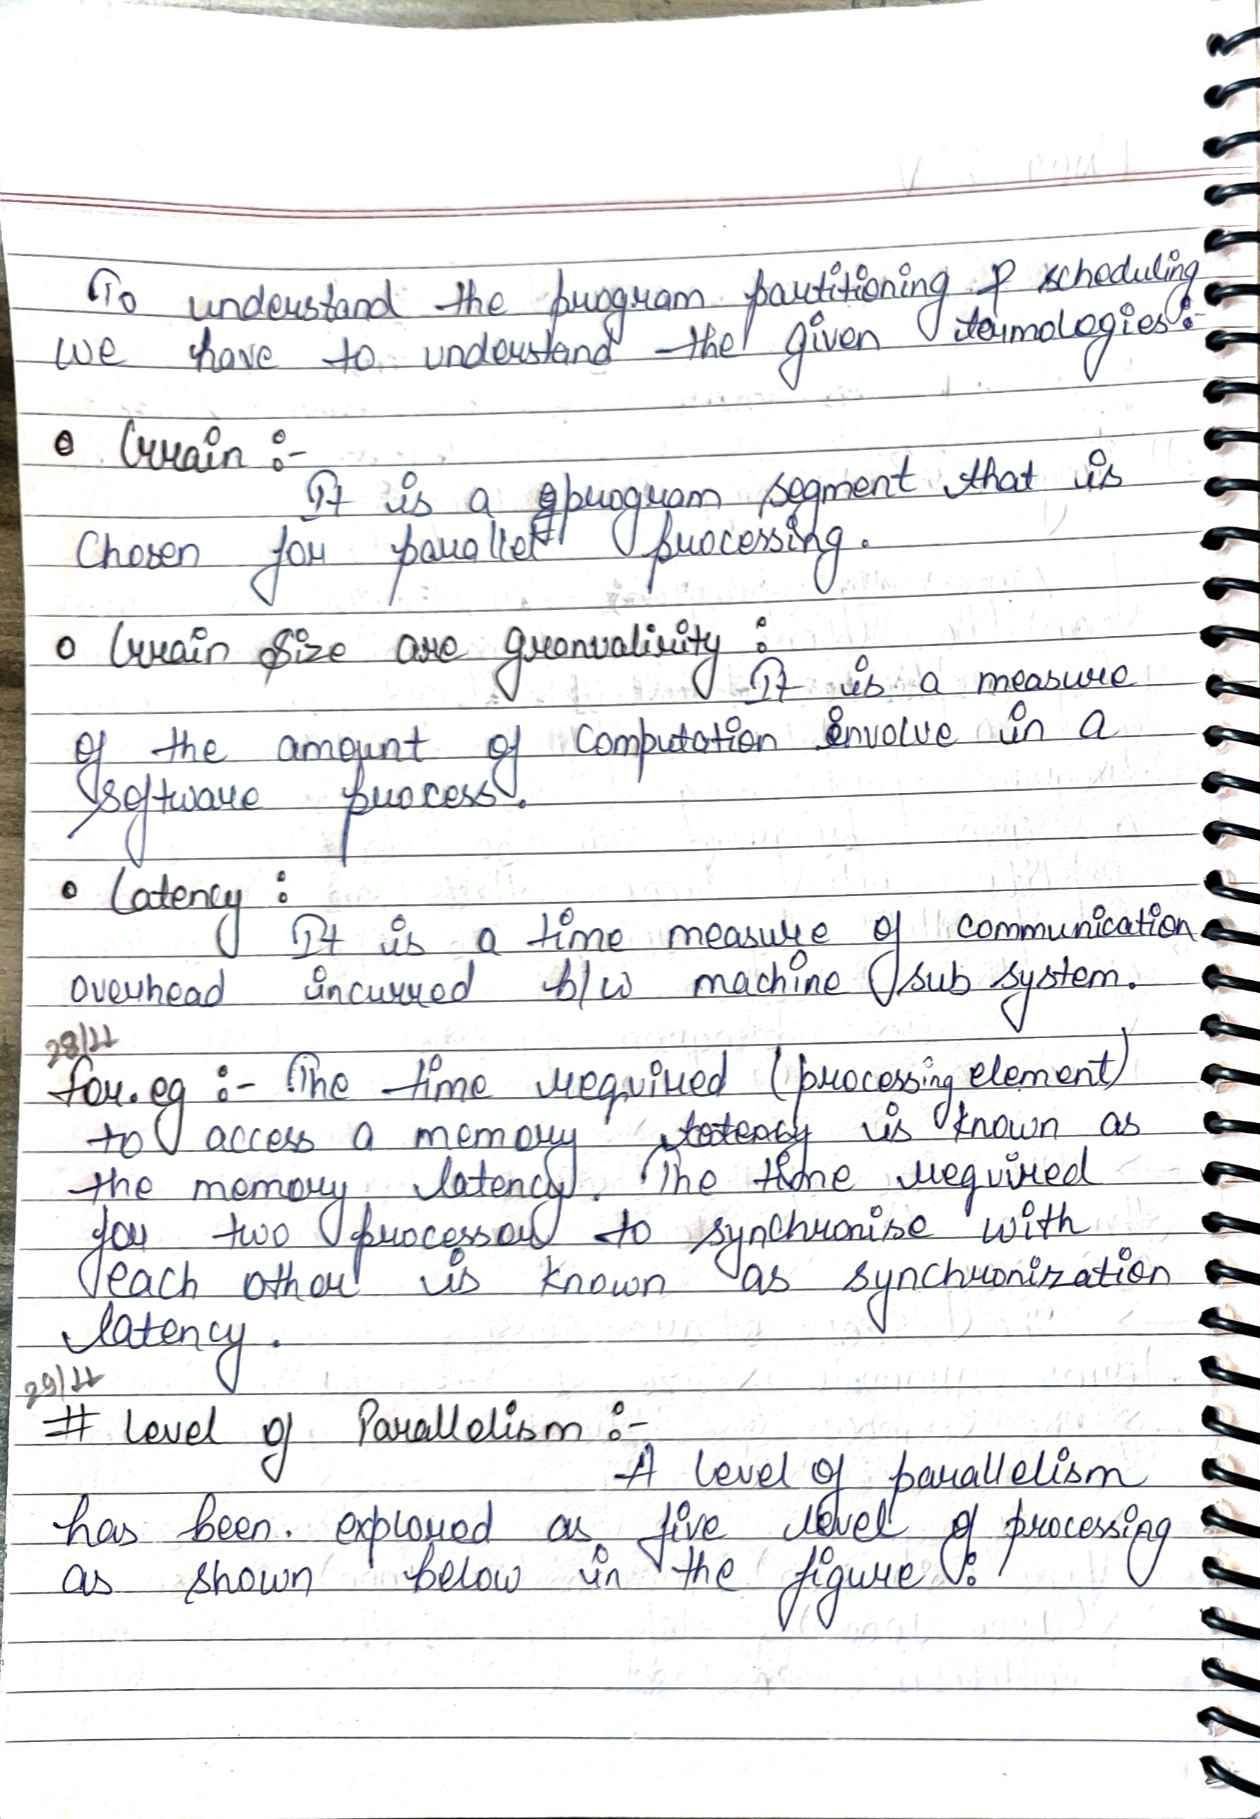 To understand the program partitioning & scheduling
we have to understand the given termologies:-
• Grain :-
It is a program segment that is
Chosen for parallel processing.
• Grain Size are gronvalirity :
It is a measure
of the amount of computation involve in a
software process.
• Latency :
It is a time measure of communication
overhead incurred b/w machine sub system.
28/11
for.eg :- The time required (processing element)
to access a memory latency is known as
the memory latency. The time required
for two processor to synchronise with
each other is known as synchronization
latency.
29/11
# Level of Parallelism :-
A level of parallelism
has been. explored as five level of processing
as shown below in the figure :